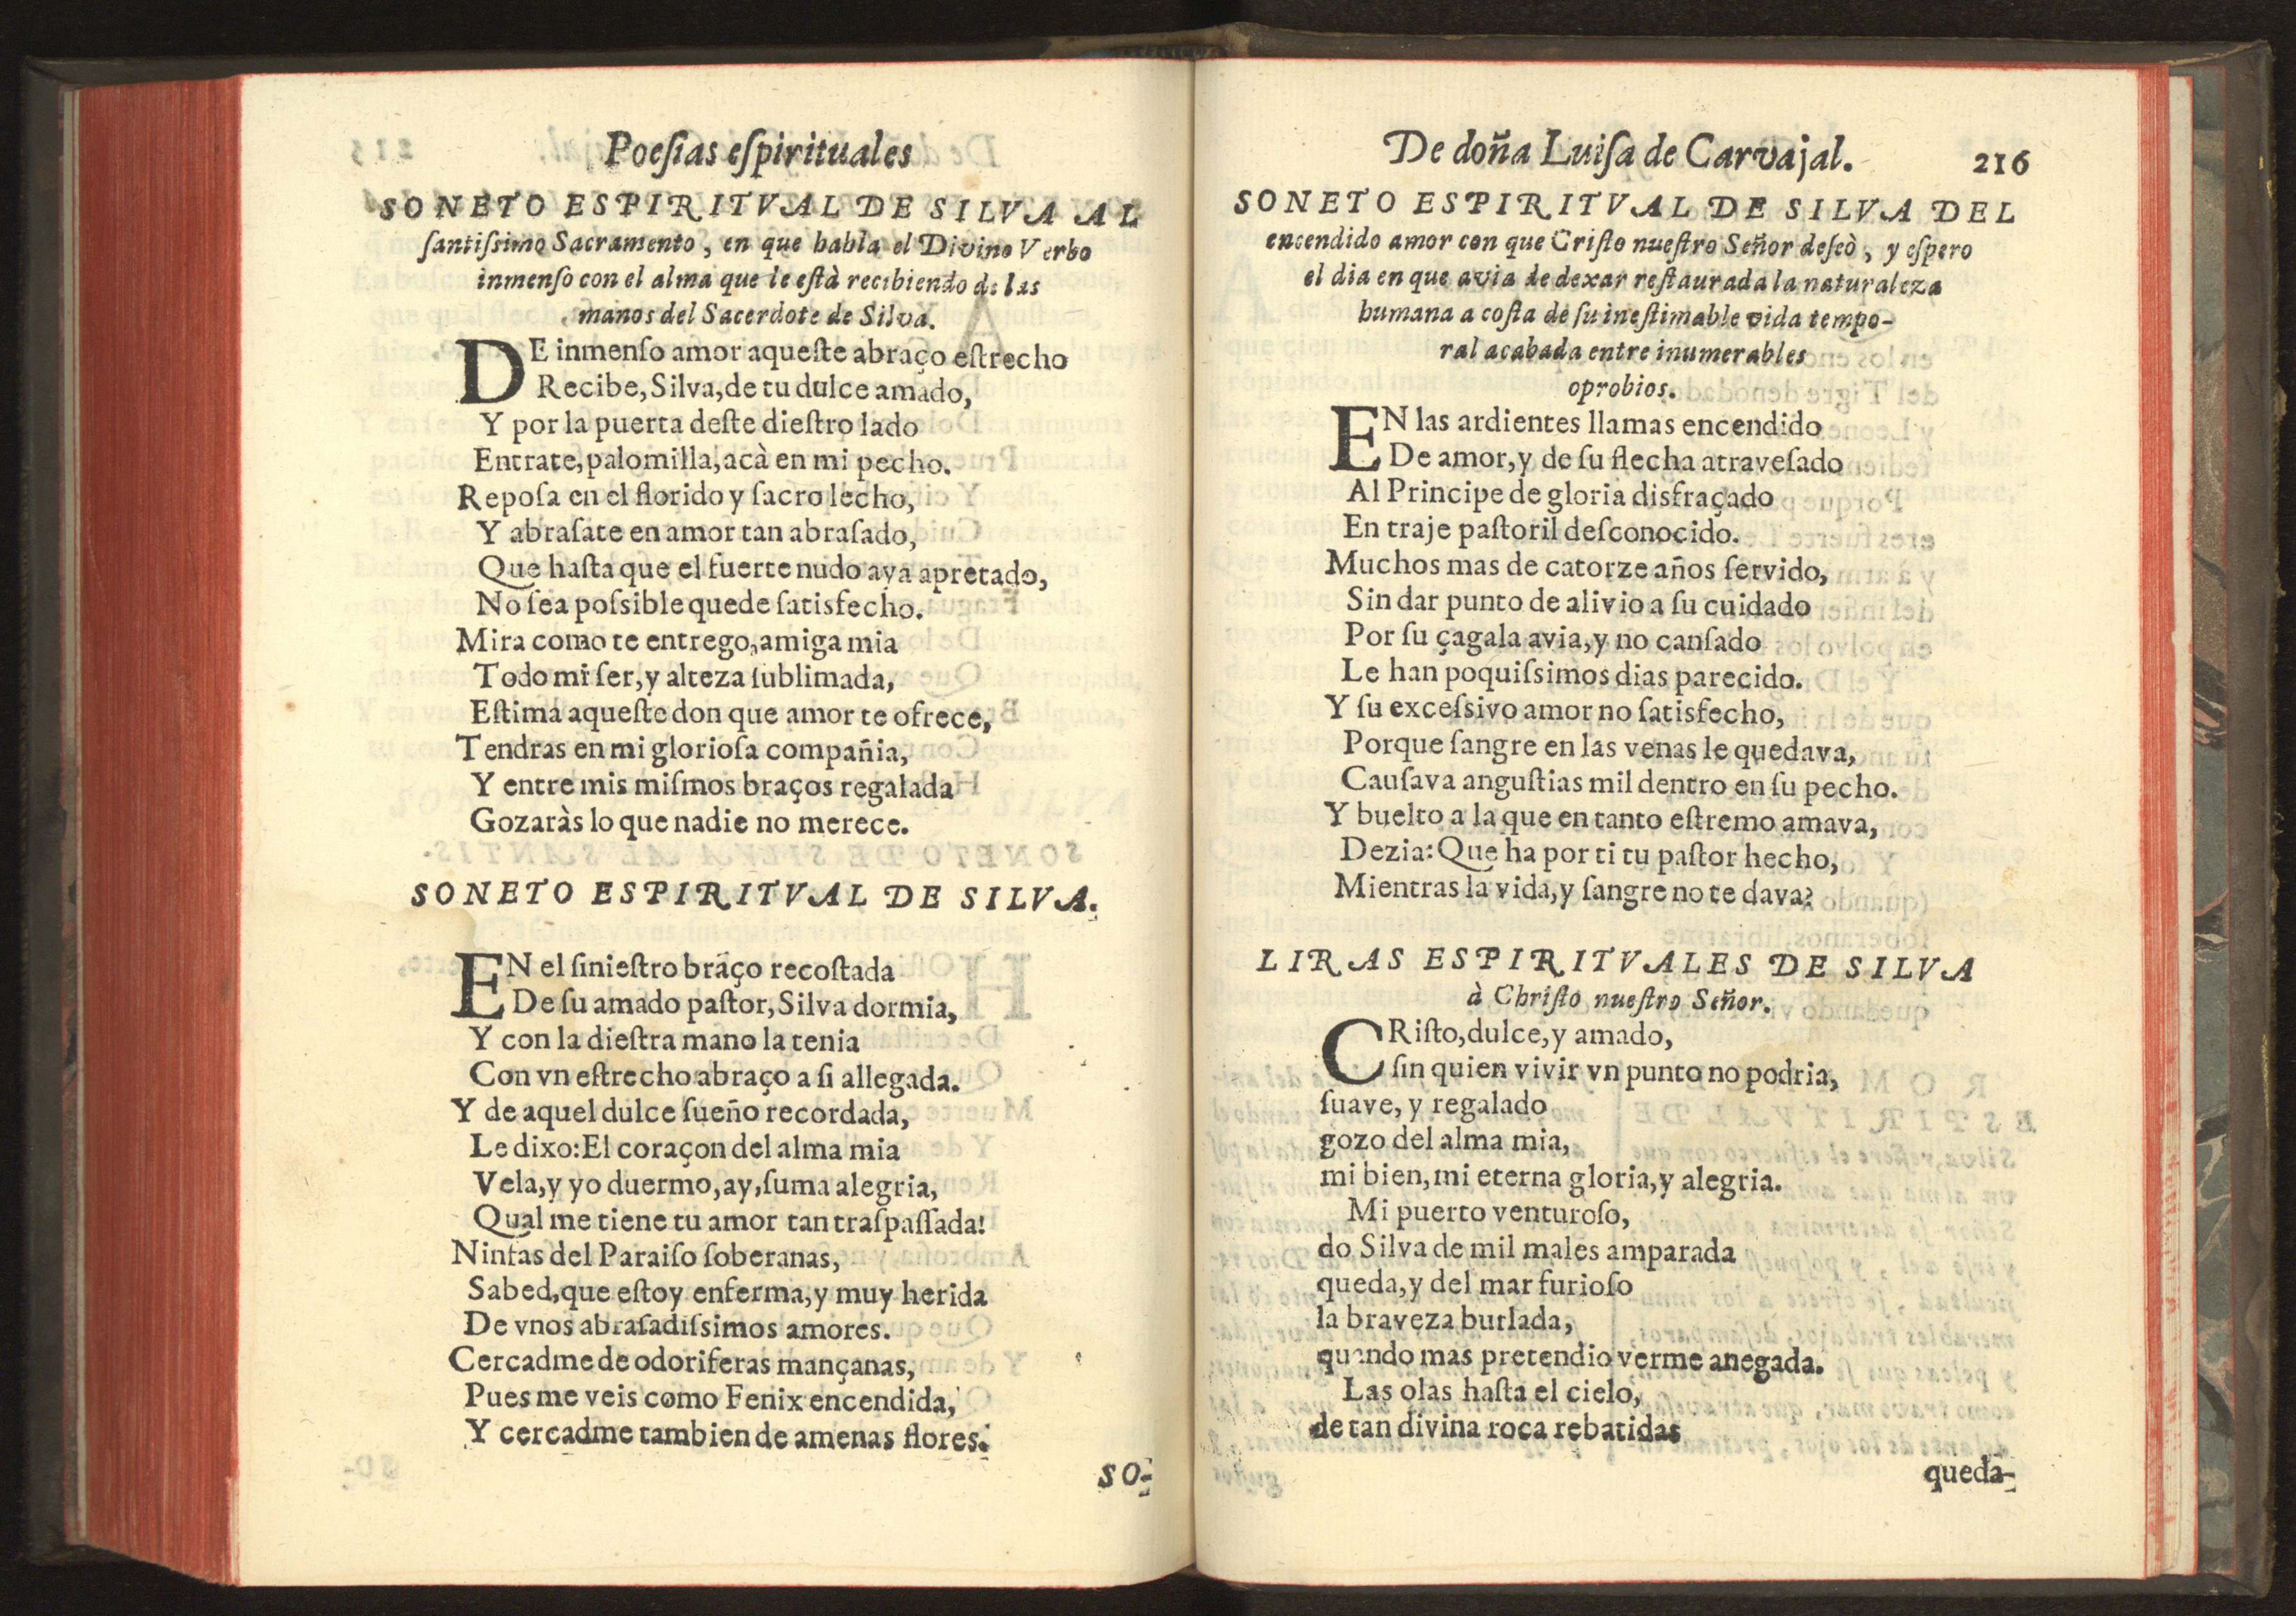 Poeſias eſpirituales
SONETO ESPIRITVAL DE SILVA AL
ſantiſsimo Sacramento, en que habla el Divino Verbo
inmenſo con el alma que le eſtà recibiendo de las
manos del Sacerdote de Silva.
DE inmenſo amor aqueſte abraço eſtrecho
Recibe, Silva, de tu dulce amado,
Y por la puerta deſte dieſtro lado
Entrate, palomilla, acà en mi pecho.
Repoſa en el florido y ſacro lecho,
Y abraſate en amor tan abraſado,
Que haſta que el fuerte nudo aya apretado,
No ſea poſsible quede ſatisfecho.
Mira como te entrego, amiga mia
Todo mi ſer, y alteza ſublimada,
Eſtima aqueſte don que amor te ofrece,
Tendras en mi glorioſa compañia,
Y entre mis miſmos braços regalada
Gozaràs lo que nadie no merece.
SONETO ESPIRITVAL DE SILVA.
EN el ſinieſtro braço recoſtada
De ſu amado paſtor, Silva dormia,
Y con la dieſtra mano la tenia
Con vn eſtrecho abraço a ſi allegada.
Y de aquel dulce ſueño recordada,
Le dixo: El coraçon del alma mia
Vela, y yo duermo, ay, ſuma alegria,
Qual me tiene tu amor tan traſpaſſada!
Ninfas del Paraiſo ſoberanas,
Sabed, que eſtoy enferma, y muy herida
De vnos abraſadiſsimos amores.
Cercadme de odoriferas mançanas,
Pues me veis como Fenix encendida,
Y cercadme tambien de amenas flores.
SO-
De doña Luiſa de Carvajal. 216
SONETO ESPIRITVAL DE SILVA DEL
encendido amor con que Criſto nueſtro Señor deſeò, y eſpero
el dia en que avia de dexar reſtaurada la naturaleza
humana a coſta de ſu ineſtimable vida tempo-
ral acabada entre inumerables
oprobios.
EN las ardientes llamas encendido
De amor, y de ſu flecha atraveſado
Al Principe de gloria disfraçado
En traje paſtoril deſconocido.
Muchos mas de catorze años ſervido,
Sin dar punto de alivio a ſu cuidado
Por ſu çagala avia, y no canſado
Le han poquiſsimos dias parecido.
Y ſu exceſsivo amor no ſatisfecho,
Porque ſangre en las venas le quedava,
Cauſava anguſtias mil dentro en ſu pecho.
Y buelto a la que en tanto eſtremo amava,
Dezia: Que ha por ti tu paſtor hecho,
Mientras la vida, y ſangre no te dava?
LIRAS ESPIRITVALES DE SILVA
à Chriſto nueſtro Señor.
CRiſto, dulce, y amado,
ſin quien vivir vn punto no podria,
ſuave, y regalado
gozo del alma mia,
mi bien, mi eterna gloria, y alegria.
Mi puerto venturoſo,
do Silva de mil males amparada
queda, y del mar furioſo
la braveza burlada,
quando mas pretendio verme anegada.
Las olas haſta el cielo,
de tan divina roca rebatidas
queda-